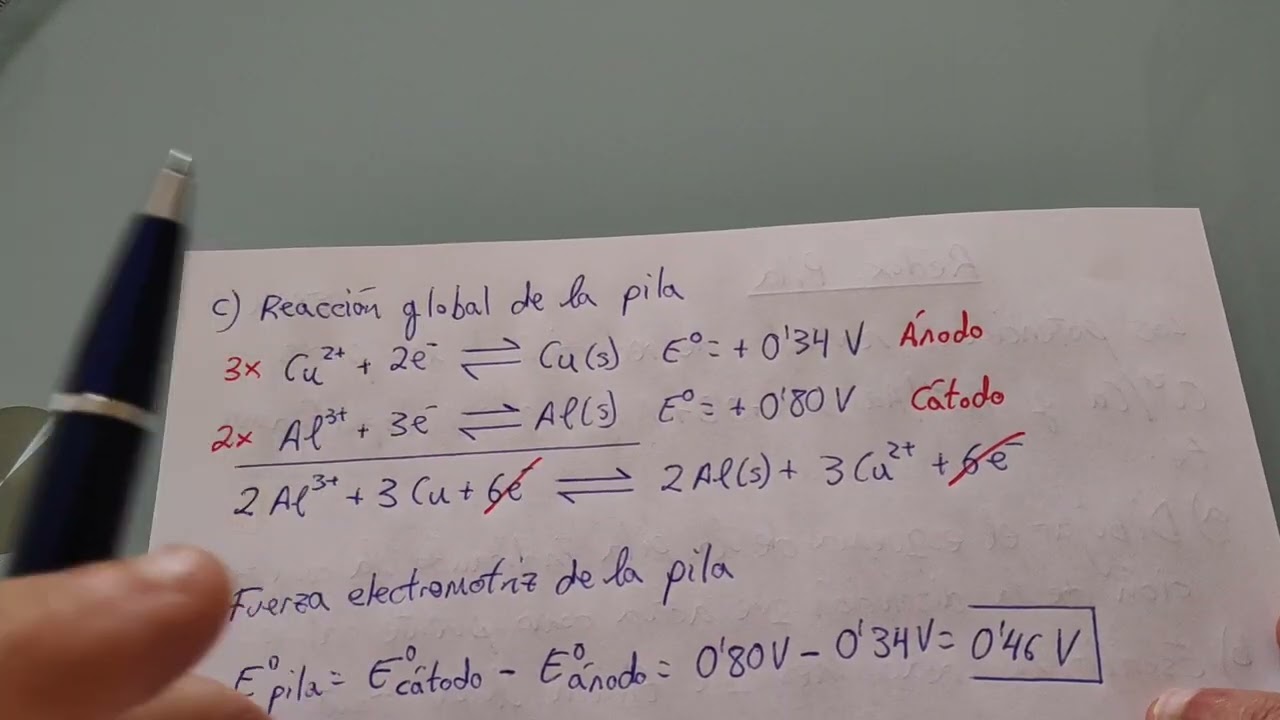 c) Reacción global de la pila
3x Cu²⁺ + 2e⁻ ⇌ Cu(s) E⁰ = + 0'34 V Ánodo
2x Al³⁺ + 3e⁻ ⇌ Al(s) E⁰ = + 0'80 V Cátodo
2 Al³⁺ + 3 Cu + 6e⁻ ⇌ 2 Al(s) + 3 Cu²⁺ + 6e⁻
Fuerza electromotriz de la pila
E⁰pila = E⁰cátodo - E⁰ánodo = 0'80V - 0'34V = 0'46 V